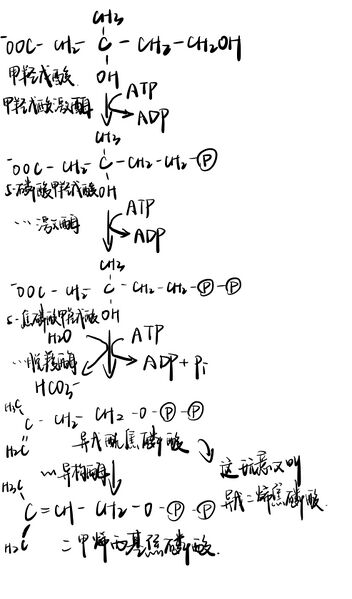 CH₃
⁻OOC - CH₂ - C - CH₂ - CH₂OH
甲羟戊酸 OH
甲羟戊酸激酶 ATP
ADP
CH₃
⁻OOC - CH₂ - C - CH₂ - CH₂ - Ⓟ
5-磷酸甲羟戊酸 OH
…激酶 ATP
ADP
CH₃
⁻OOC - CH₂ - C - CH₂ - CH₂ - Ⓟ - Ⓟ
5-焦磷酸甲羟戊酸 OH
H₂O ATP
…脱羧酶 ADP + Pi
HCO₃⁻
H₃C
C - CH₂ - CH₂ - O - Ⓟ - Ⓟ
H₂C 异戊酰焦磷酸
…异构酶 这玩意又叫
H₃C 异戊二烯焦磷酸
C = CH - CH₂ - O - Ⓟ - Ⓟ
H₃C 二甲烯丙基焦磷酸.